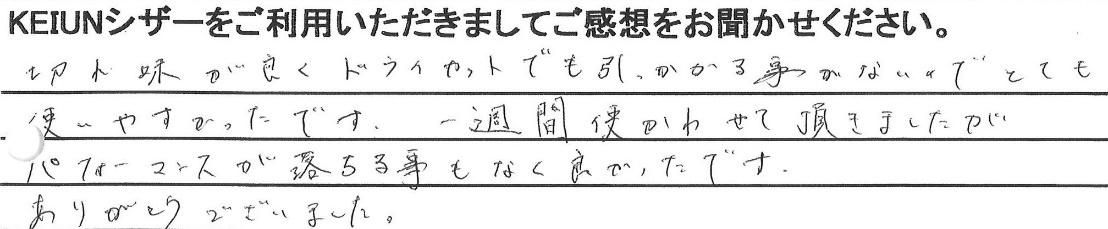 KEIUNシザーをご利用いただきましてご感想をお聞かせください。
切れ味が良くドライカットでも引っかかる事がないのでとても
使いやすかったです。一週間使かわせて頂きましたが
パフォーマンスが落ちる事もなく良かったです.
ありがとうございました。